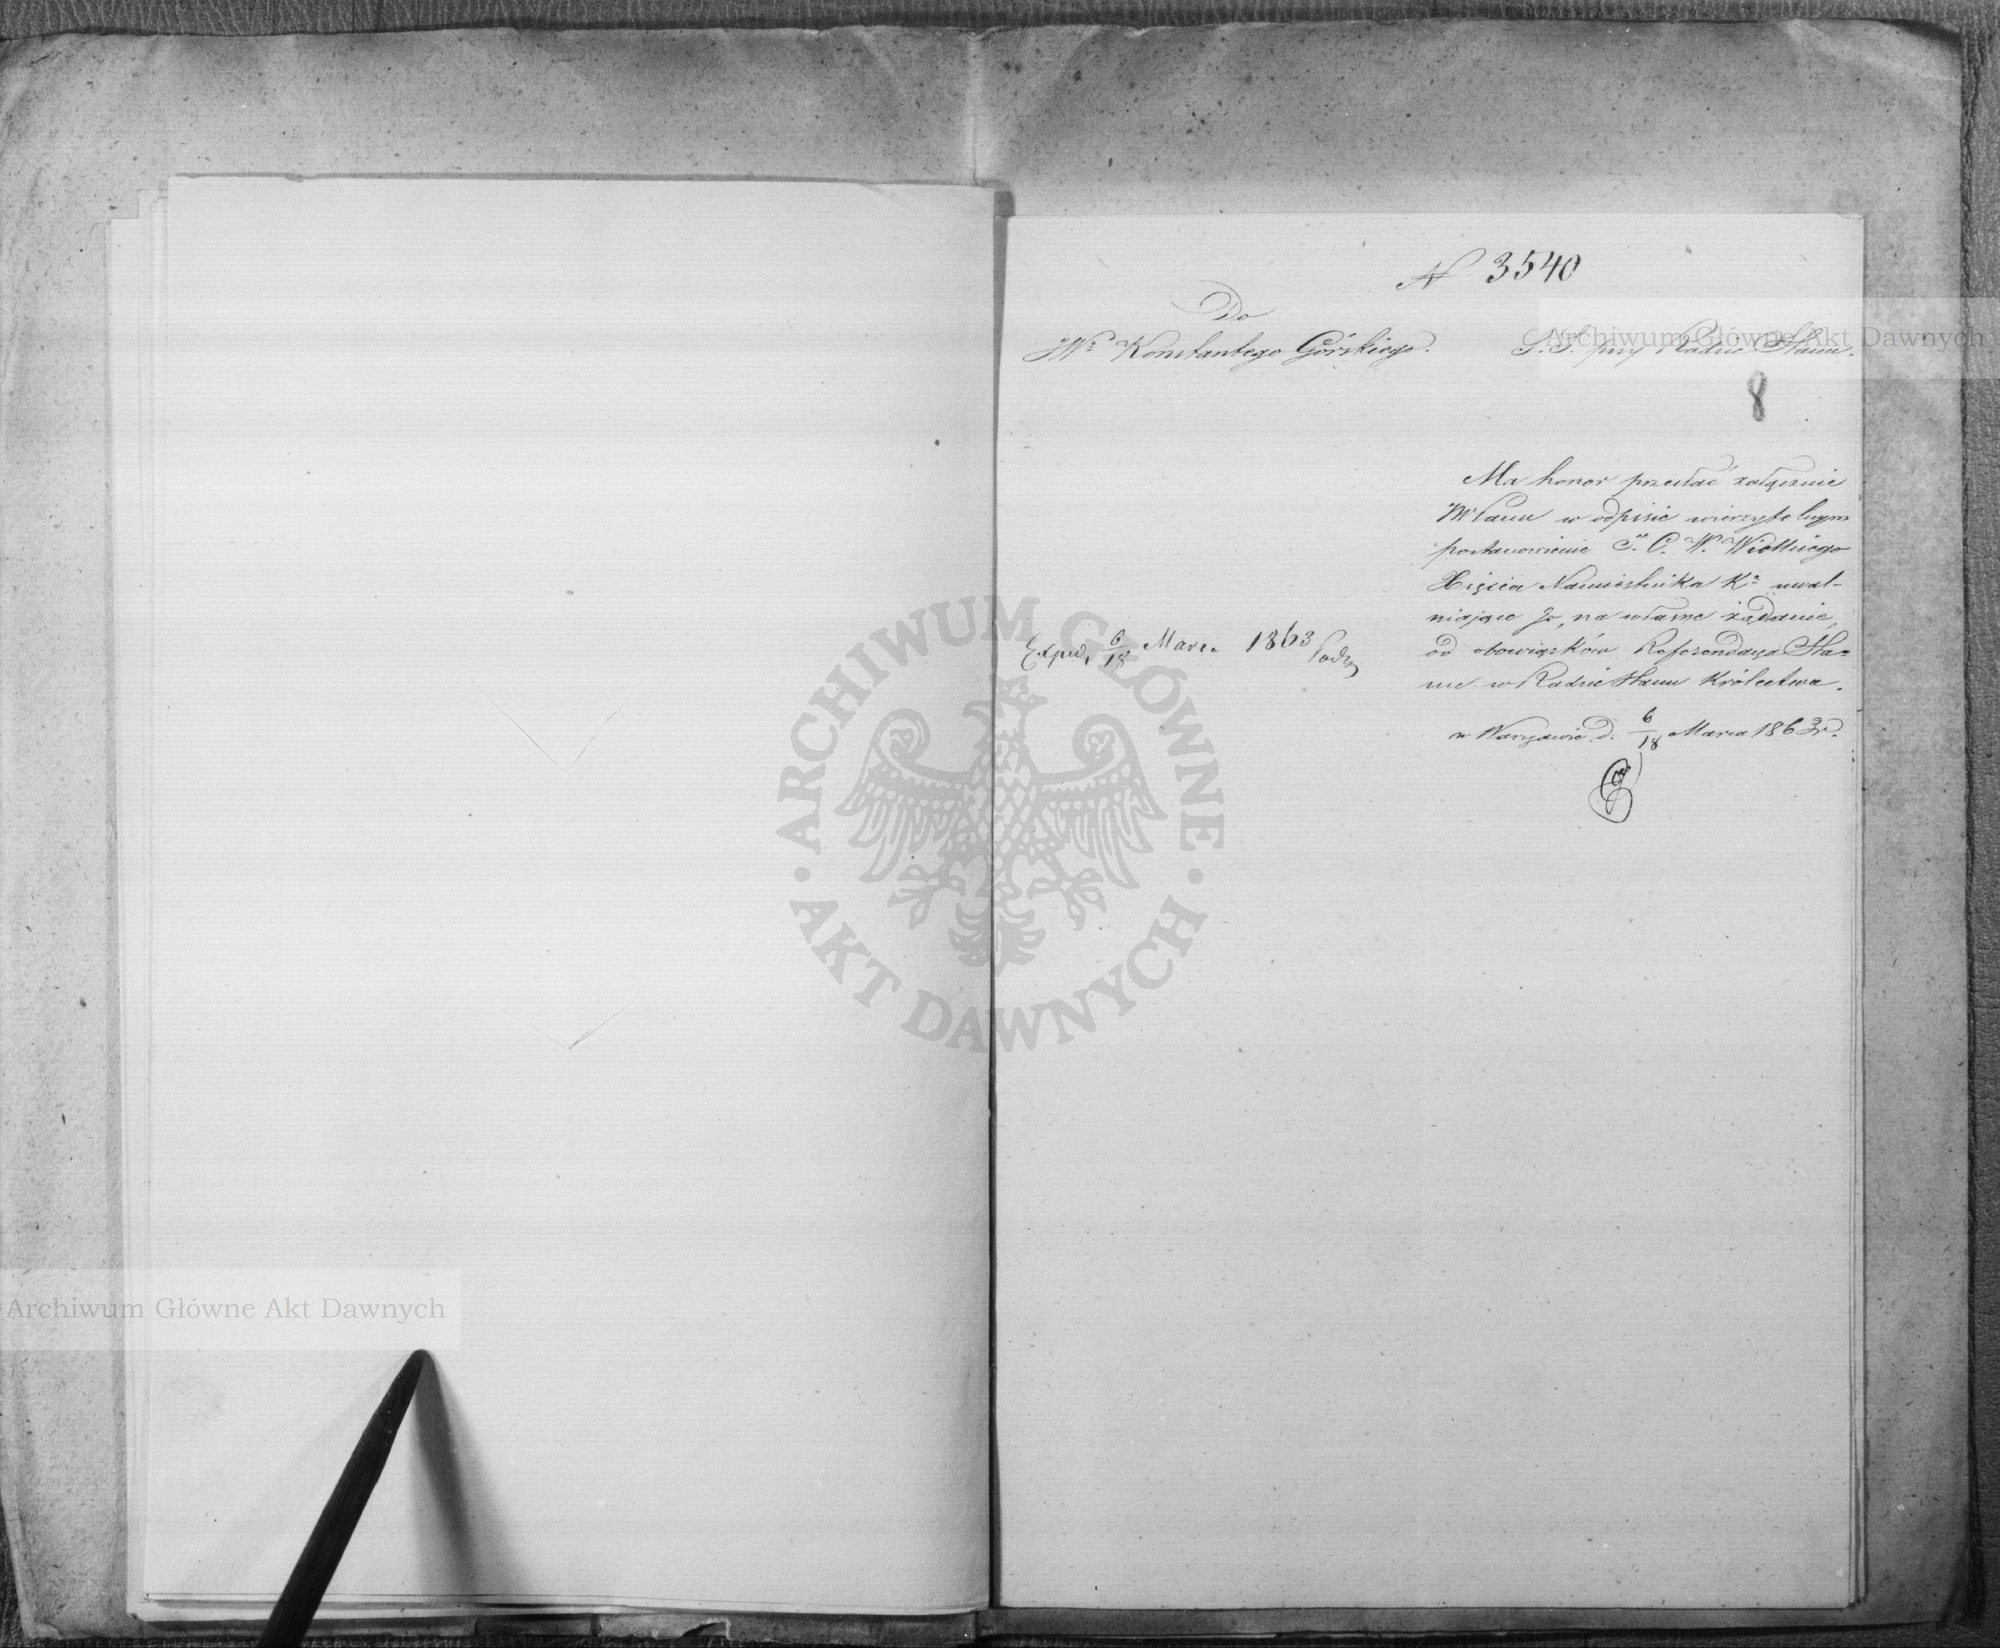 N 3540
Do
JWo Konstantego Górskiego.
S. S. przy Radzie Stanu.
8
Ma honor przesłać załącznie
JW Panu w odpisie wierzytelnym
postanowienie J. C. W. Wielkiego
Xięcia Namiestnika Ka uwal-
niające Go, na własne żądanie,
od obowiązków Referendarza Sta=
nu w Radzie Stanu Królestwa.
Exped. 6/18 Marca 1863
w Warszawie d. 6/18 Marca 1863 r.
Archiwum Główne Akt Dawnych
ARCHIWUM GŁÓWNE · AKT DAWNYCH ·
Archiwum Główne Akt Dawnych